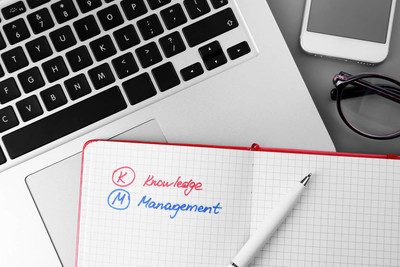 K Knowledge
M Management